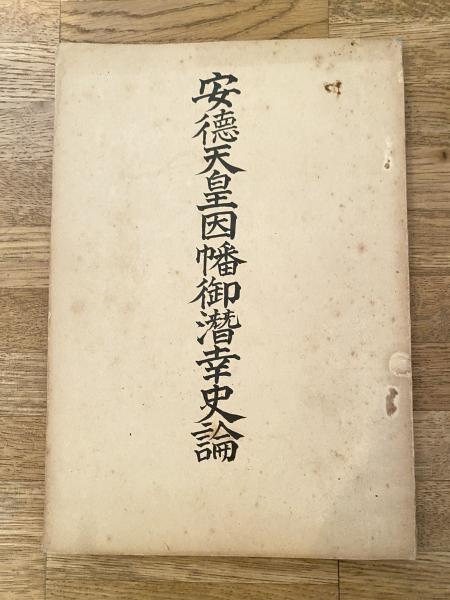 安德天皇因幡御潛幸史論